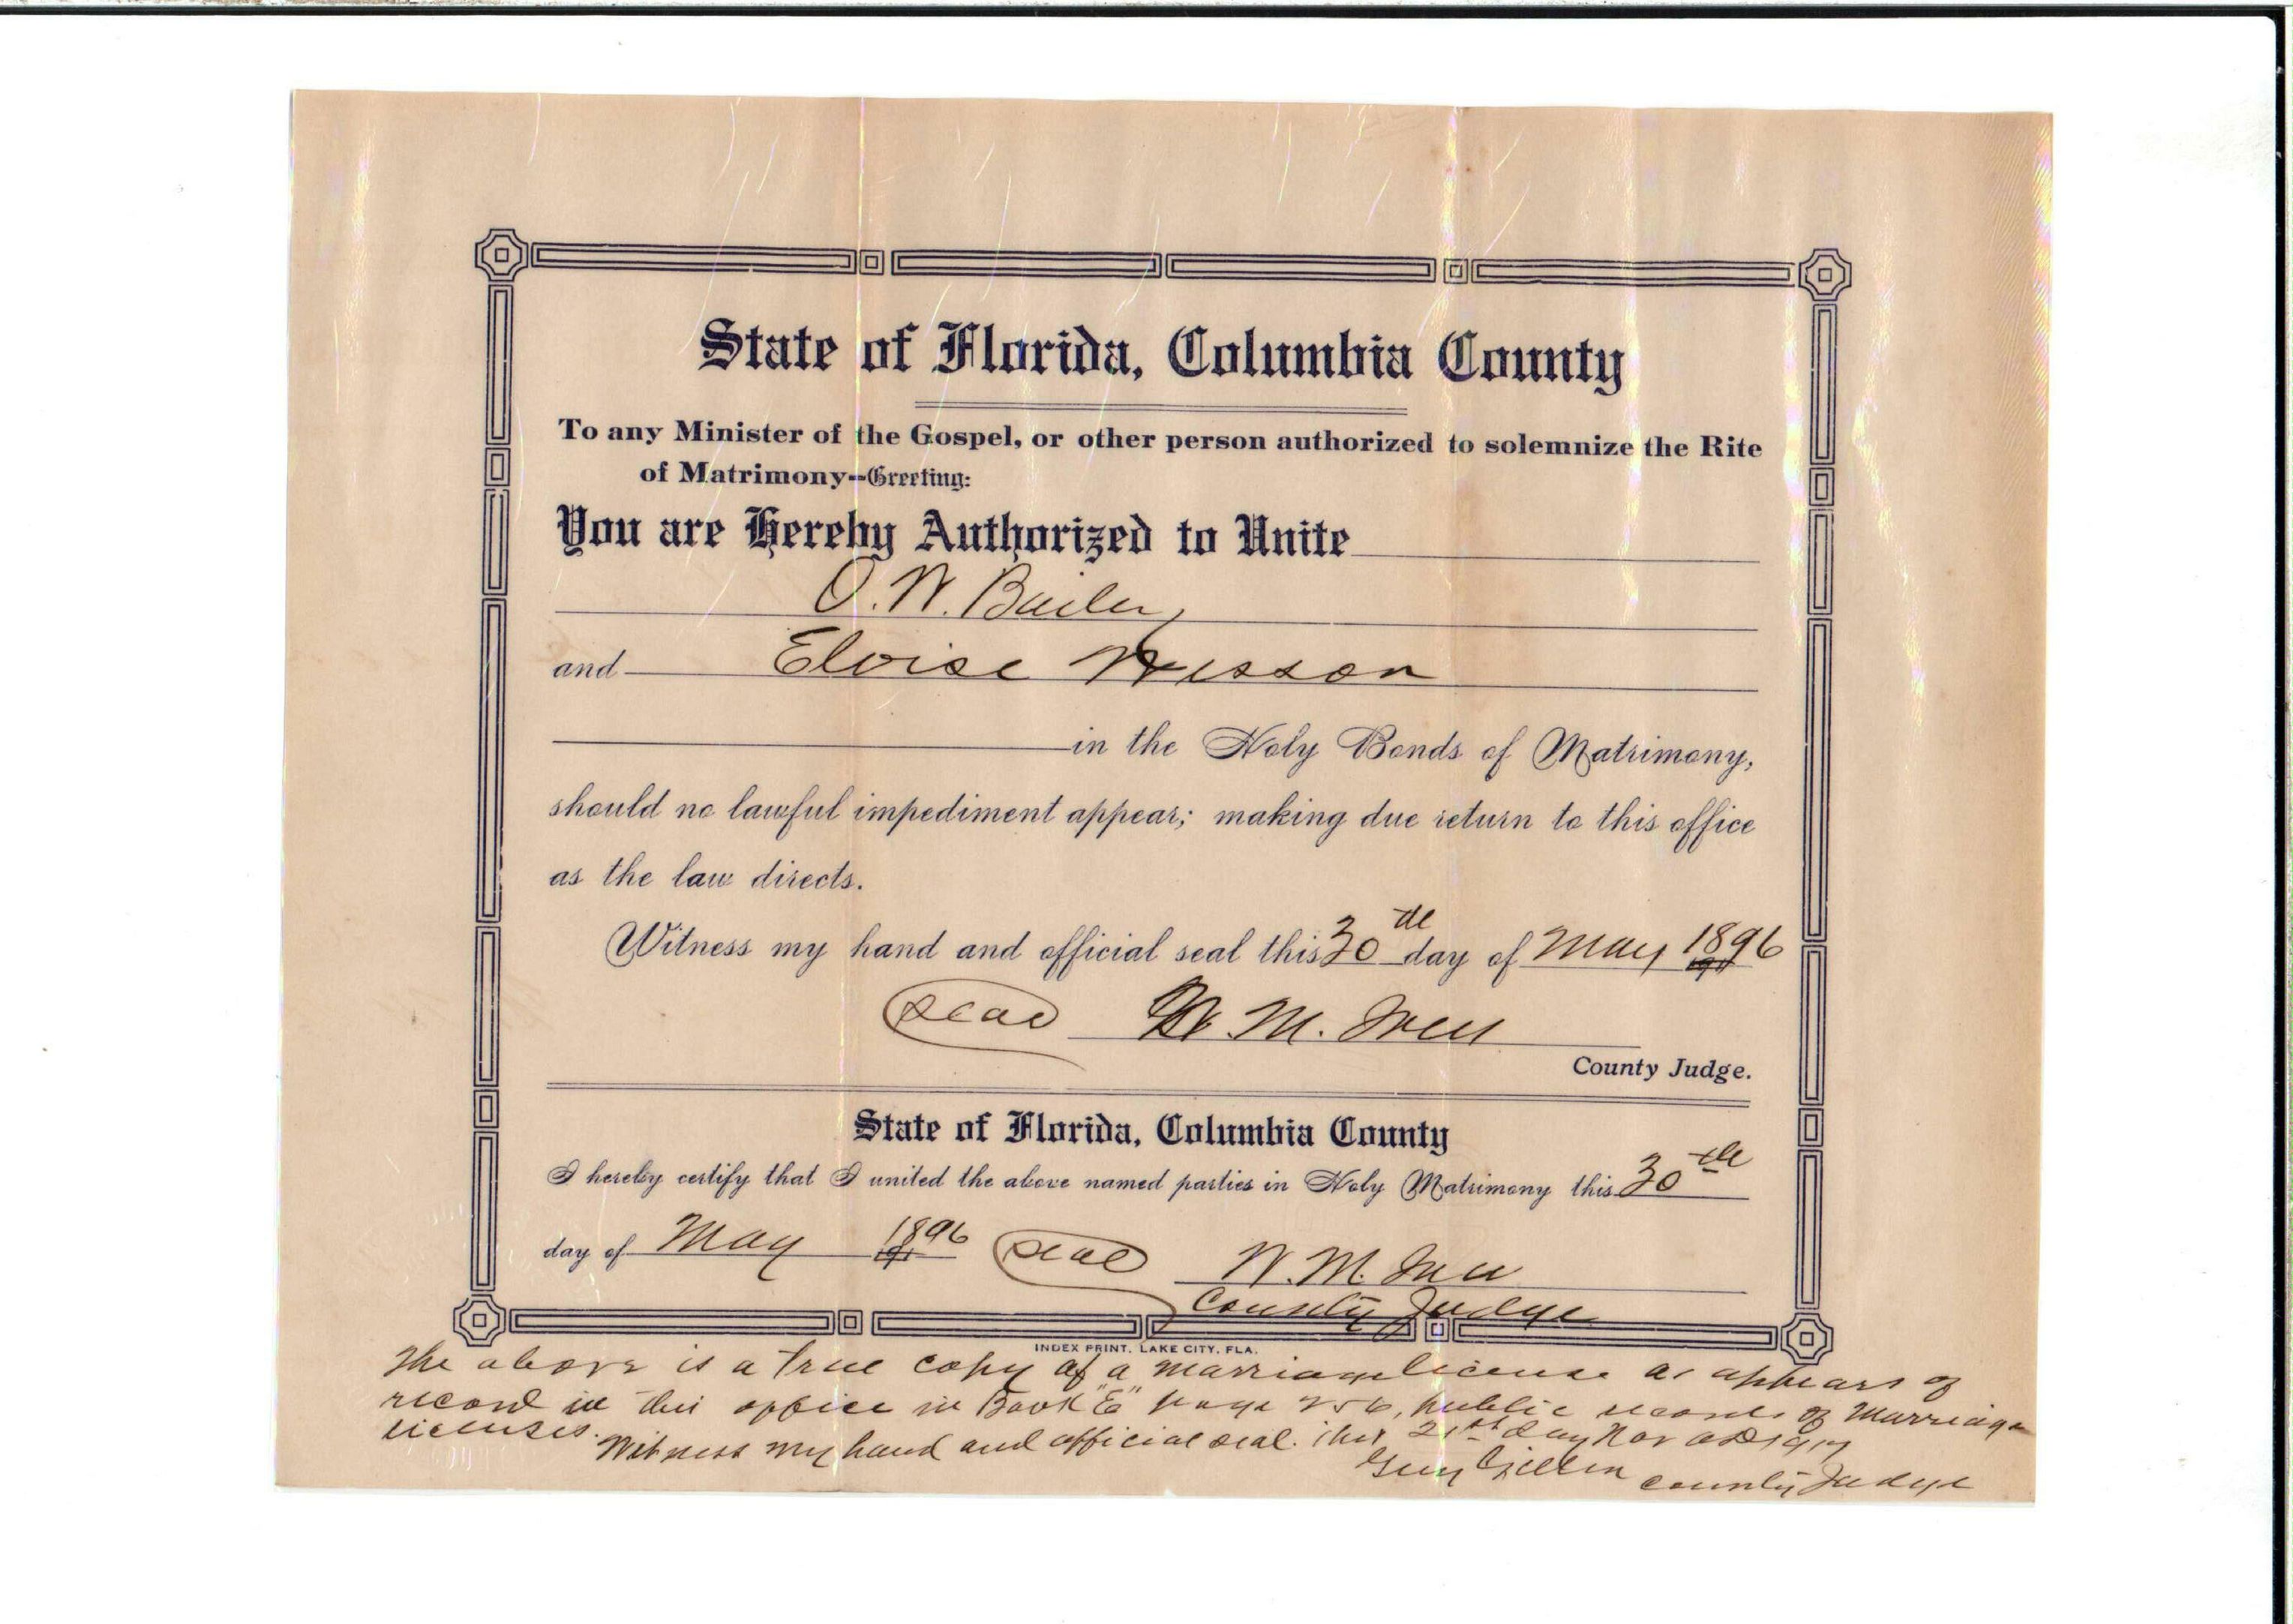 State of Florida, Columbia County
To any Minister of the Gospel, or other person authorized to solemnize the Rite
of Matrimony--Greeting:
You are Hereby Authorized to Unite
O. W. Bailey
and Eloise Wesson
in the Holy Bonds of Matrimony,
should no lawful impediment appear; making due return to this office
as the law directs.
Witness my hand and official seal this 30th day of May 1896
Seal W. M. Ives
County Judge.
State of Florida, Columbia County
I hereby certify that I united the above named parties in Holy Matrimony this 30th
day of May 1896 Seal W. M. Ives
County Judge
INDEX PRINT, LAKE CITY, FLA.
The above is a true copy of a marriage license as appears of
record in this office in Book "E" page 256, public records of Marriage
licenses.
Witness my hand and official seal. this 21st day Nov AD
Guy Gillen County Judge